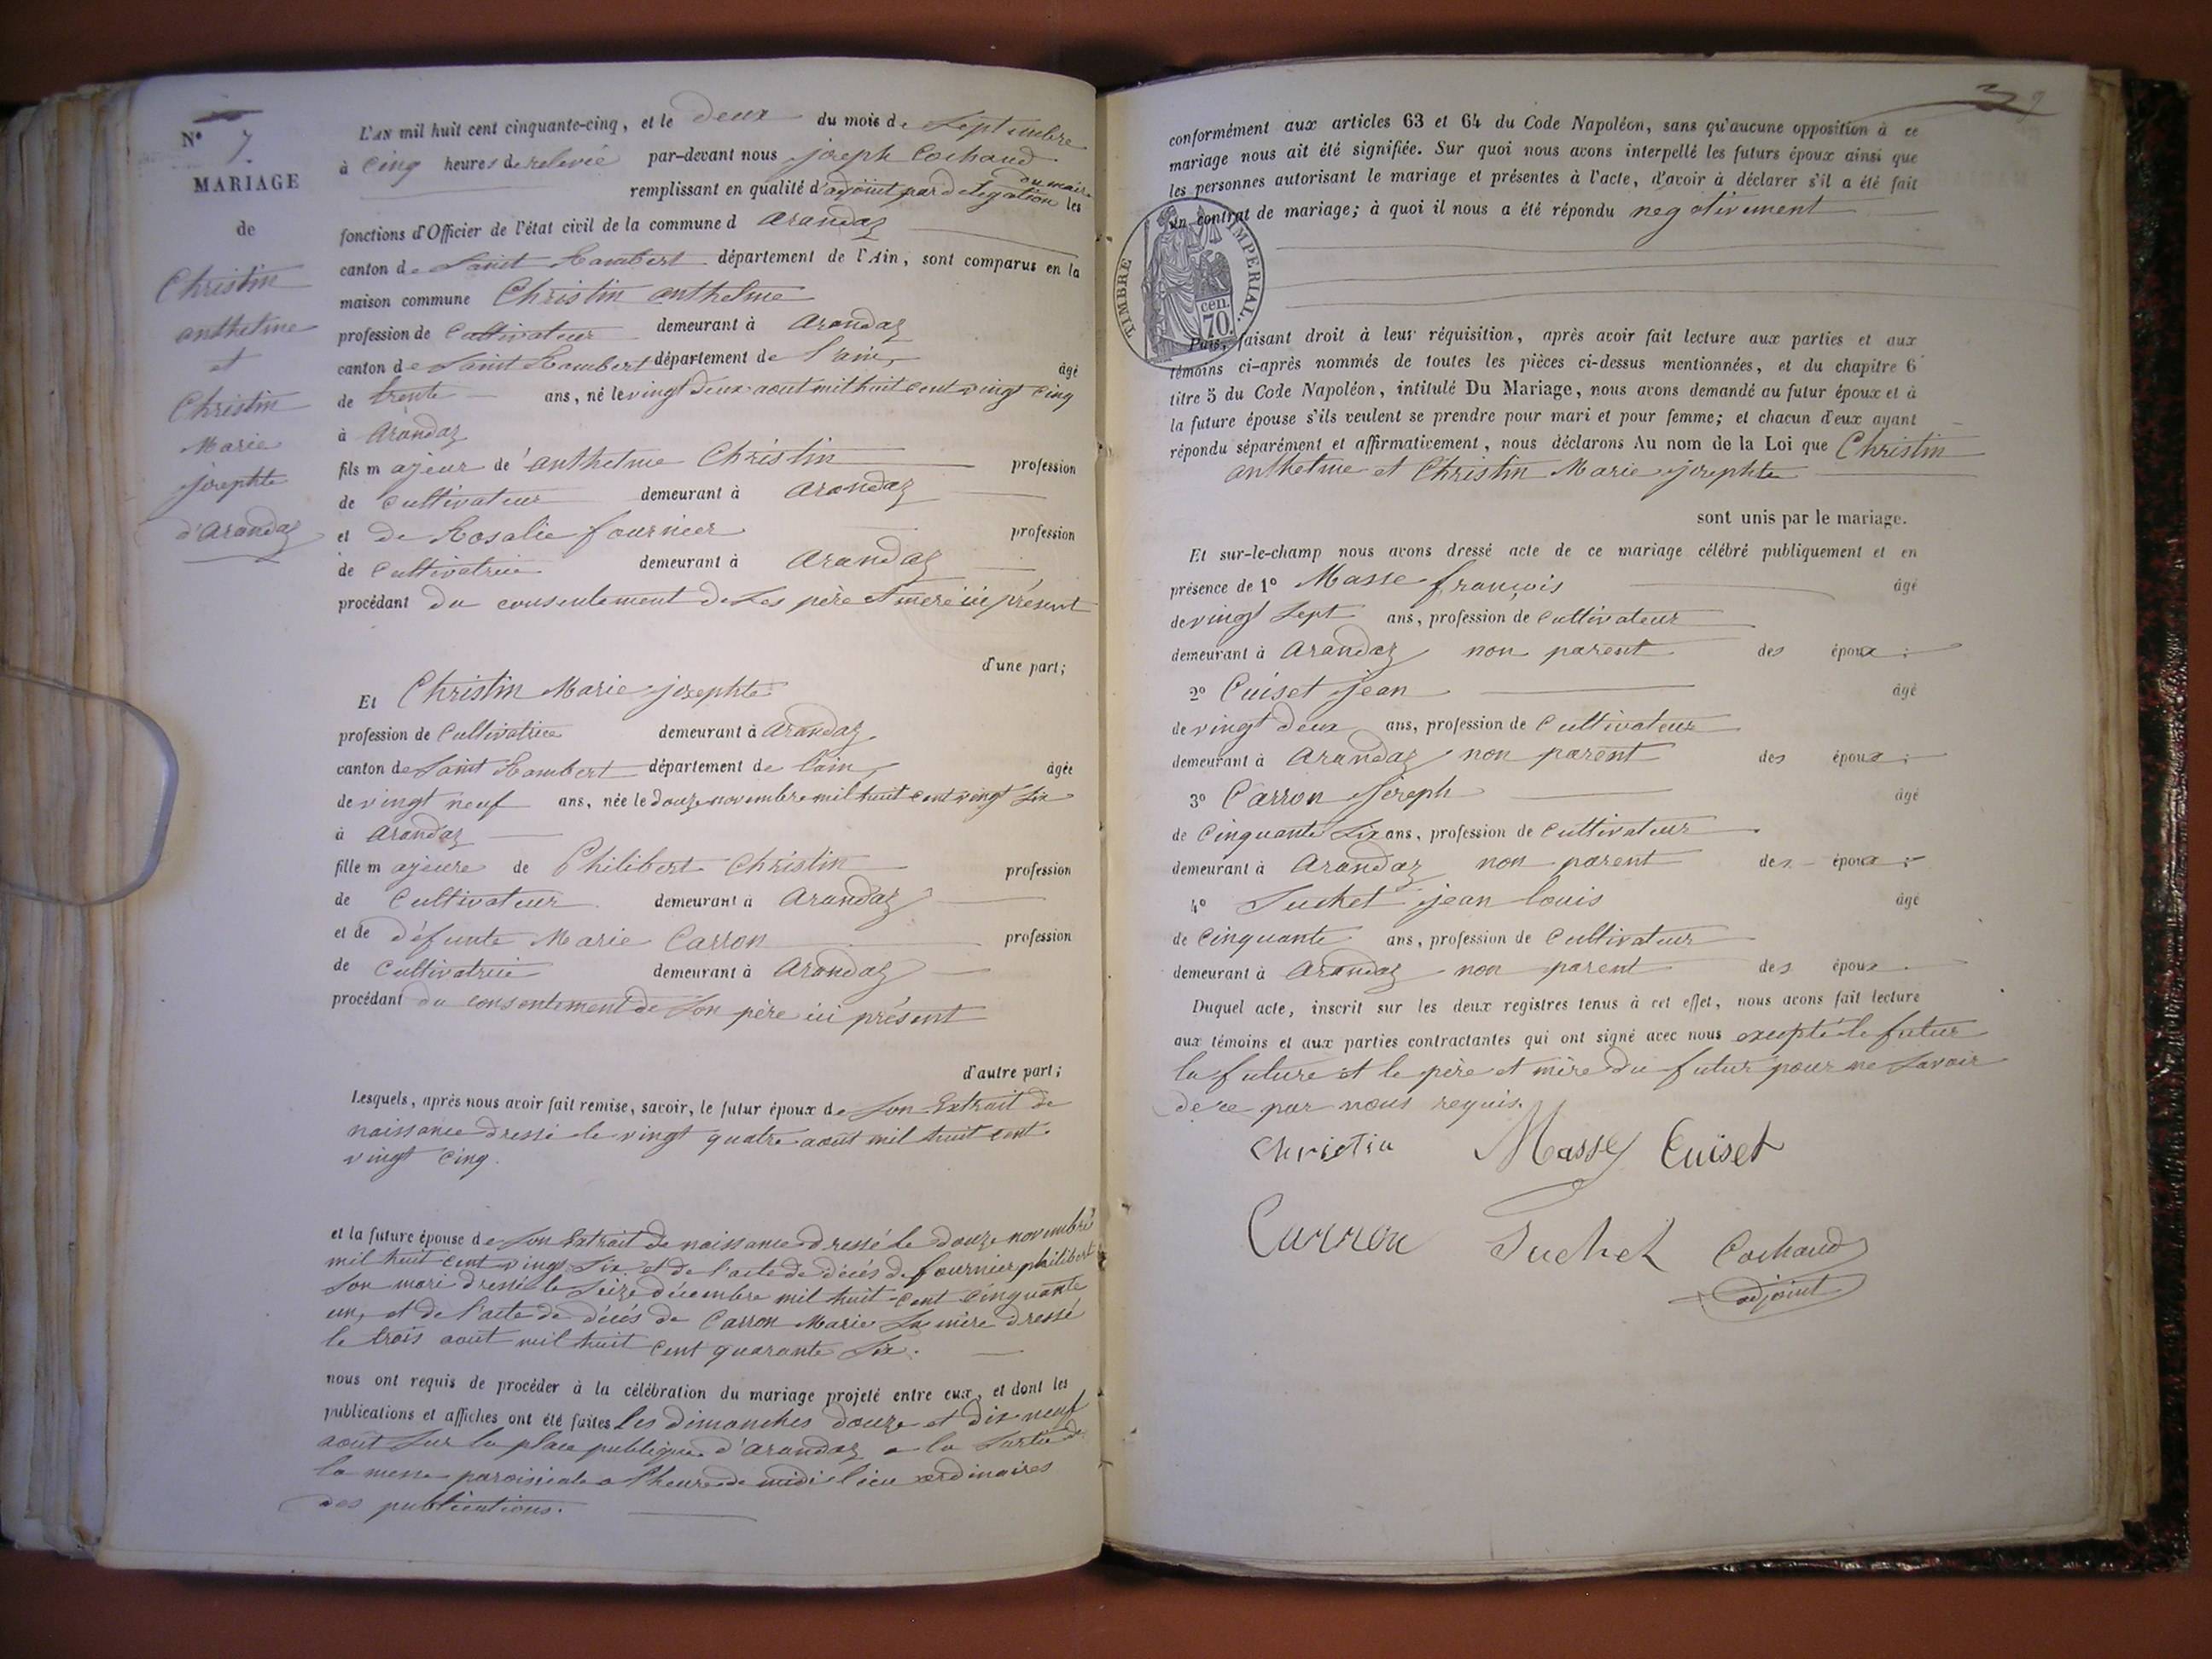 N° 7
MARIAGE
de
Christin
anthelme
et
Christin
Marie
josephte
d'arandaz
L'AN mil huit cent cinquante-cinq, et le deux du mois de Septembre
à cinq heures de relevée par-devant nous joseph Cochaud
remplissant en qualité d'adjoint par délégation du maire les
fonctions d'Officier de l'état civil de la commune d arandaz
canton de Saint Rambert département de l'Ain, sont comparus en la
maison commune Christin anthelme
profession de Cultivateur demeurant à arandaz
canton de Saint Rambert département de l'ain, âgé
de trente ans, né le vingt deux aout mil huit cent vingt cinq
à arandaz
fils majeur de anthelme Christin profession
de Cultivateur demeurant à arandaz
et de Rosalie fournier profession
de Cultivatrice demeurant à arandaz
procédant du consentement de Ses père et mère ici présent
d'une part;
Et Christin Marie josephte
profession de Cultivatrice demeurant à arandaz
canton de Saint Rambert département de l'ain, âgée
de vingt neuf ans, née le Douze novembre mil huit cent vingt Six
à arandaz
fille majeure de Philibert Christin profession
de Cultivateur demeurant à arandaz
et de défunte Marie Carron profession
de Cultivatrice demeurant à arandaz
procédant du consentement de Son père ici présent
d'autre part;
Lesquels, après nous avoir fait remise, savoir, le futur époux de Son Extrait de
naissance dressé le vingt quatre août mil huit cent
vingt cinq.
et la future épouse de Son Extrait de naissance dressé le douze novembre
mil huit cent vingt Six et de l'acte de décès de fournier philibert
Son mari dressé le Seize décembre mil huit-cent cinquante
un, et de l'acte de décès de Carron Marie Sa mère dressé
le trois aout mil huit cent quarante Six.
nous ont requis de procéder à la célébration du mariage projeté entre eux, et dont les
publications et affiches ont été faites Les dimanches douze et dix neuf
août Sur la place publique d'arandaz a la Sortie de
la messe paroissiale a l'heure de midi lieu ordinaires
des publications.
conformément aux articles 63 et 64 du Code Napoléon, sans qu'aucune opposition à ce
mariage nous ait été signifiée. Sur quoi nous avons interpellé les futurs époux ainsi que
les personnes autorisant le mariage et présentes à l'acte, d'avoir à déclarer s'il a été fait
un contrat de mariage; à quoi il nous a été répondu negativement
TIMBRE IMPERIAL.
cen.
70.
Puis, faisant droit à leur réquisition, après avoir fait lecture aux parties et aux
témoins ci-après nommés de toutes les pièces ci-dessus mentionnées, et du chapitre 6
titre 5 du Code Napoléon, intitulé Du Mariage, nous avons demandé au futur époux et à
la future épouse s'ils veulent se prendre pour mari et pour femme; et chacun d'eux ayant
répondu séparément et affirmativement, nous déclarons Au nom de la Loi que Christin
anthelme et Christin Marie josephte
sont unis par le mariage.
Et sur-le-champ nous avons dressé acte de ce mariage célébré publiquement et en
présence de 1° Masse françois âgé
de vingt Sept ans, profession de Cultivateur
demeurant à arandaz non parent des époux;
2° Cuiset jean âgé
de vingt deux ans, profession de Cultivateur
demeurant à arandaz non parent des époux;
3° Carron Joseph âgé
de Cinquante Six ans, profession de Cultivateur
demeurant à arandaz non parent des époux;
4° Suchet jean louis âgé
de Cinquante ans, profession de Cultivateur
demeurant à arandaz non parent des époux
Duquel acte, inscrit sur les deux registres tenus à cet effet, nous avons fait lecture
aux témoins et aux parties contractantes qui ont signé avec nous excepté le futur
la future et le père et mère du futur pour ne Savoir
de ce par nous requis.
Christin Masse Cuiset
Carron Suchet Cochaud
adjoint